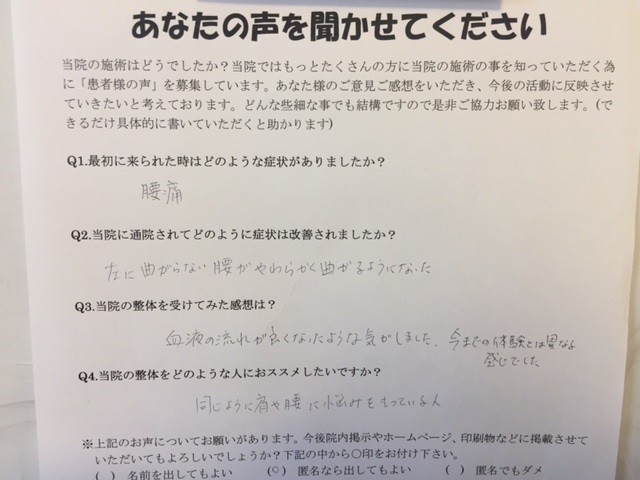 あなたの声を聞かせてください
当院の施術はどうでしたか？当院ではもっとたくさんの方に当院の施術の事を知っていただく為
に「患者様の声」を募集しています。あなた様のご意見ご感想をいただき、今後の活動に反映させ
ていきたいと考えております。どんな些細な事でも結構ですので是非ご協力お願い致します。(で
きるだけ具体的に書いていただくと助かります)
Q1.最初に来られた時はどのような症状がありましたか？
腰痛
Q2.当院に通院されてどのように症状は改善されましたか？
左に曲がらない腰がやわらかく曲がるようになった
Q3.当院の整体を受けてみた感想は？
血液の流れが良くなったような気がしました、今までの体験とは異なる
感じでした
Q4.当院の整体をどのような人におススメしたいですか？
同じように肩や腰に悩みをもっている人
※上記のお声についてお願いがあります。今後院内掲示やホームページ、印刷物などに掲載させて
いただいてもよろしいでしょうか？下記の中から〇印をお付け下さい。
( ) 名前を出してもよい (○) 匿名なら出してもよい ( ) 匿名でもダメ